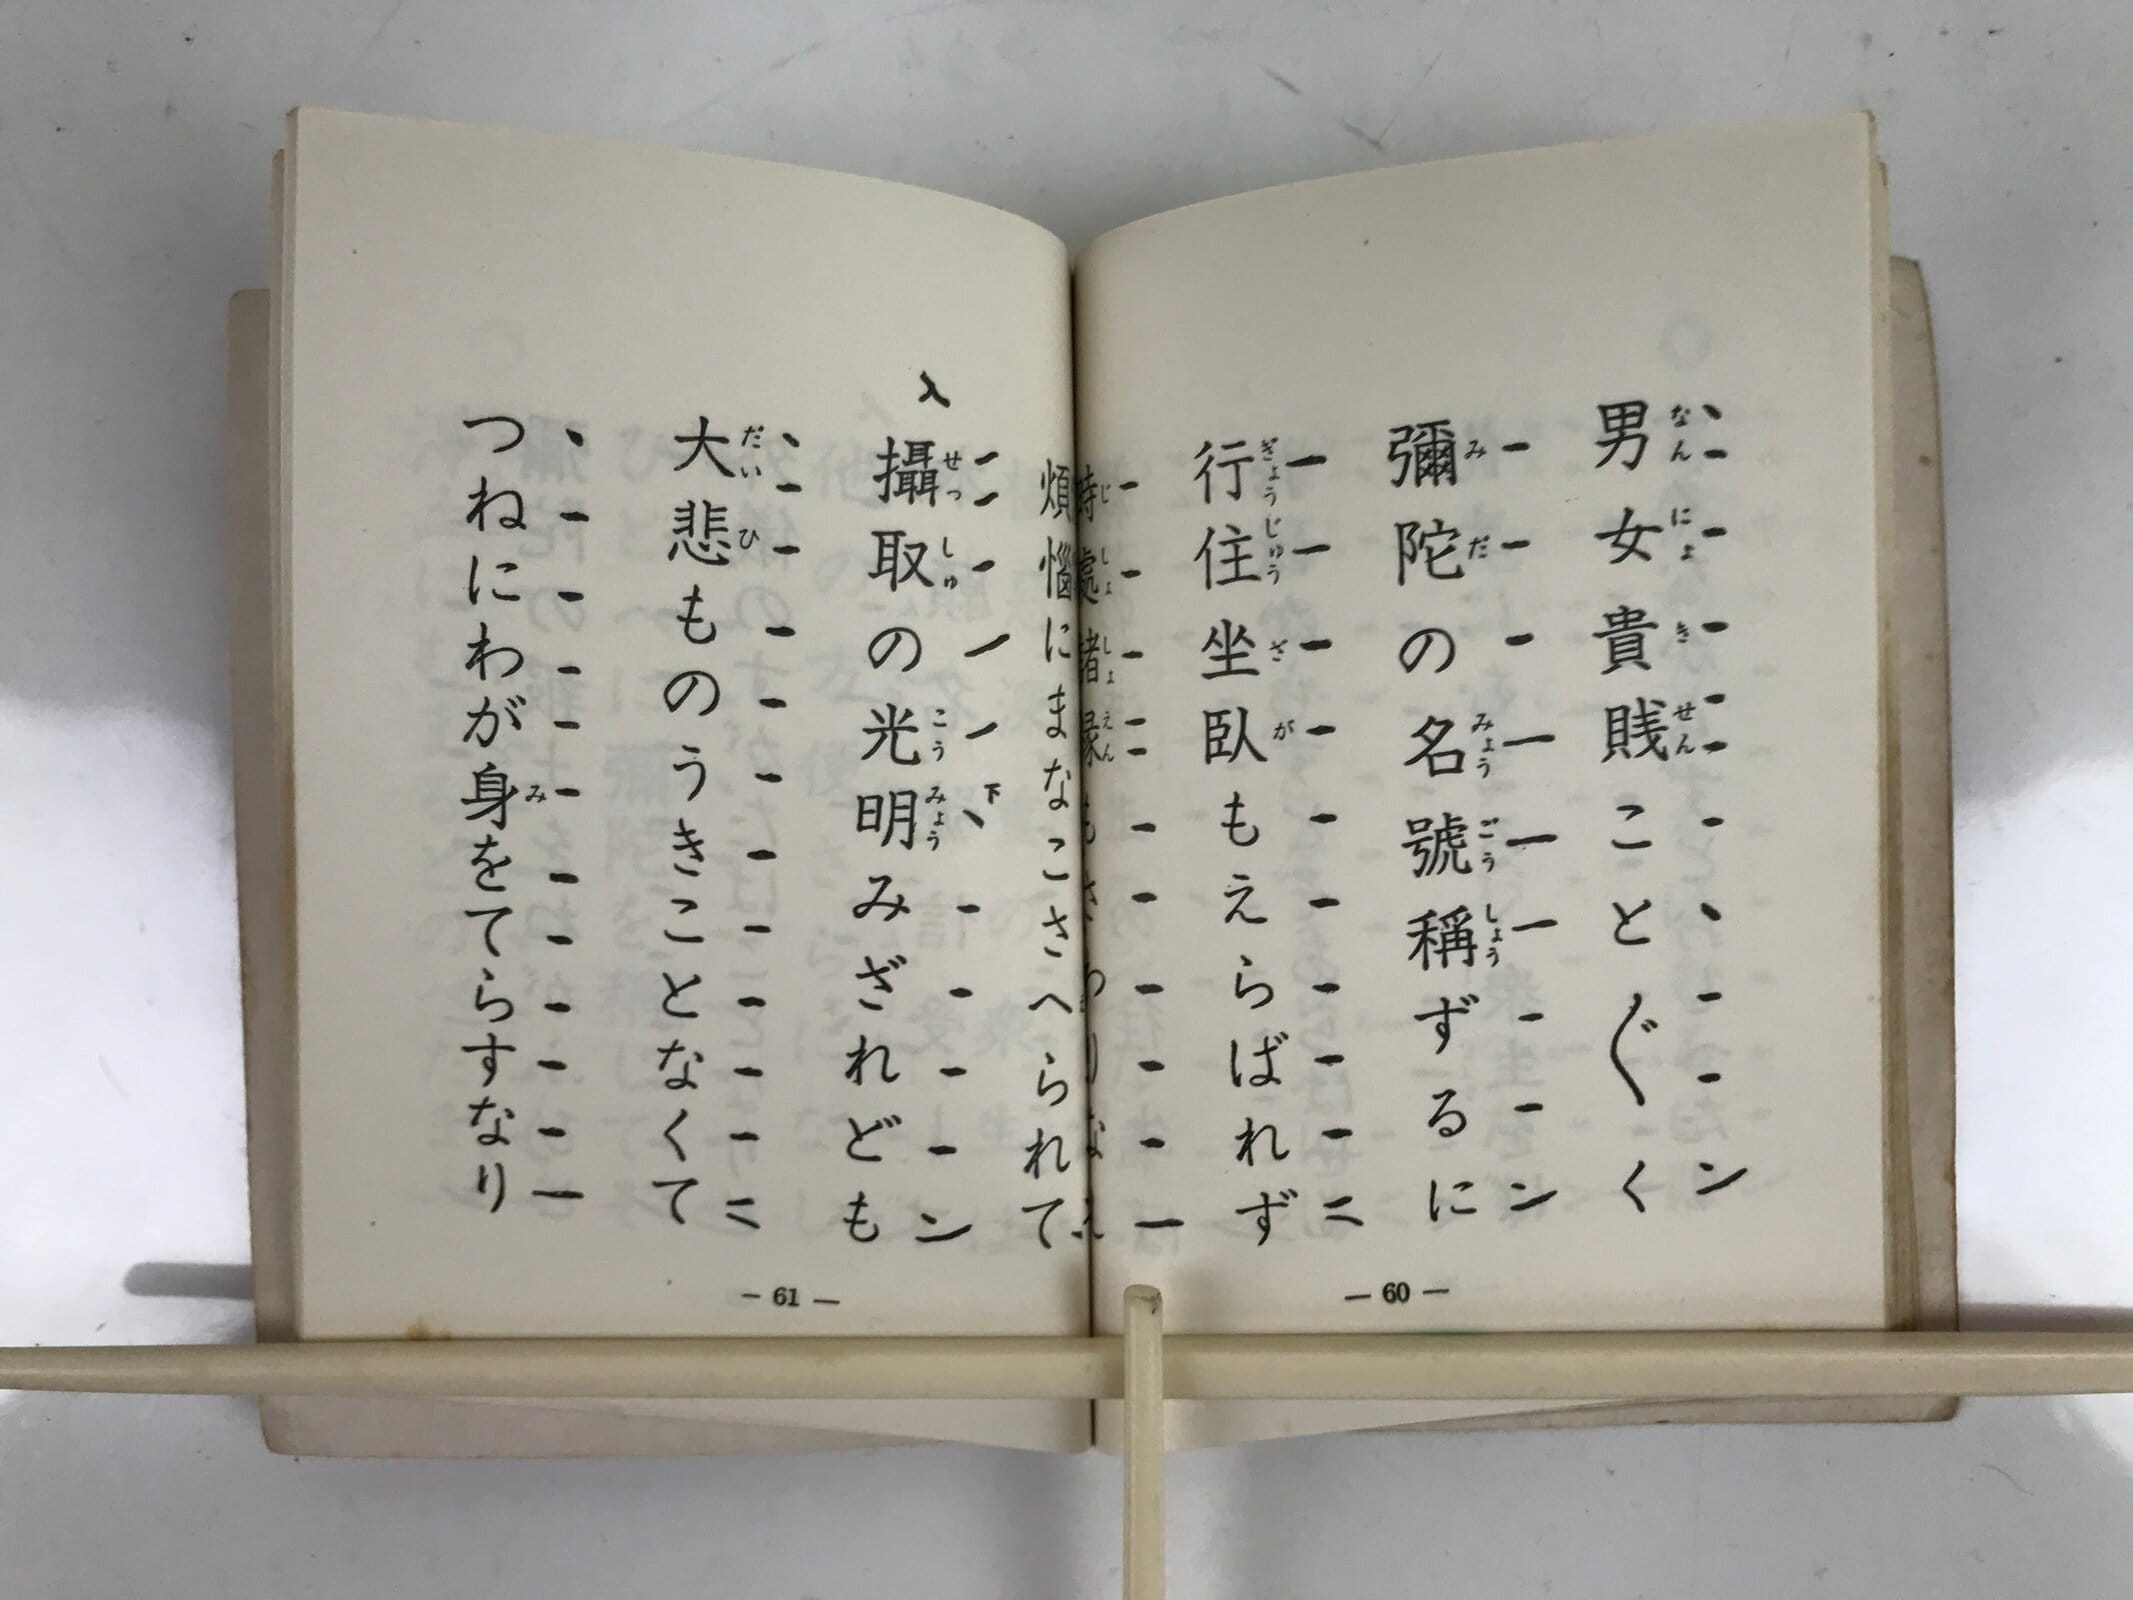 男女貴賤ことぐ〵く
彌陀の名號稱ずるに
行住坐臥もえらばれず
時處諸縁もさわりなし
— 60 —
煩惱にまなこさへられて
攝取の光明みざれども
大悲ものうきことなくて
つねにわが身をてらすなり
— 61 —